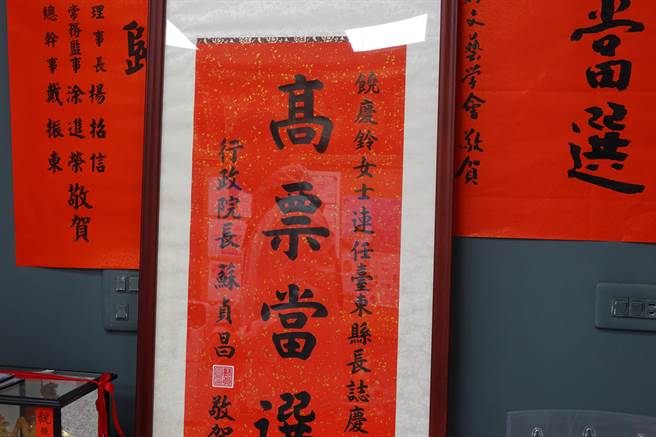 當選
文藝學會 敬賀
饒慶鈴女士連任臺東縣長誌慶
高票當選
行政院長 蘇貞昌 敬賀
理事長楊招信
常務監事涂進榮
總幹事戴振東
敬賀